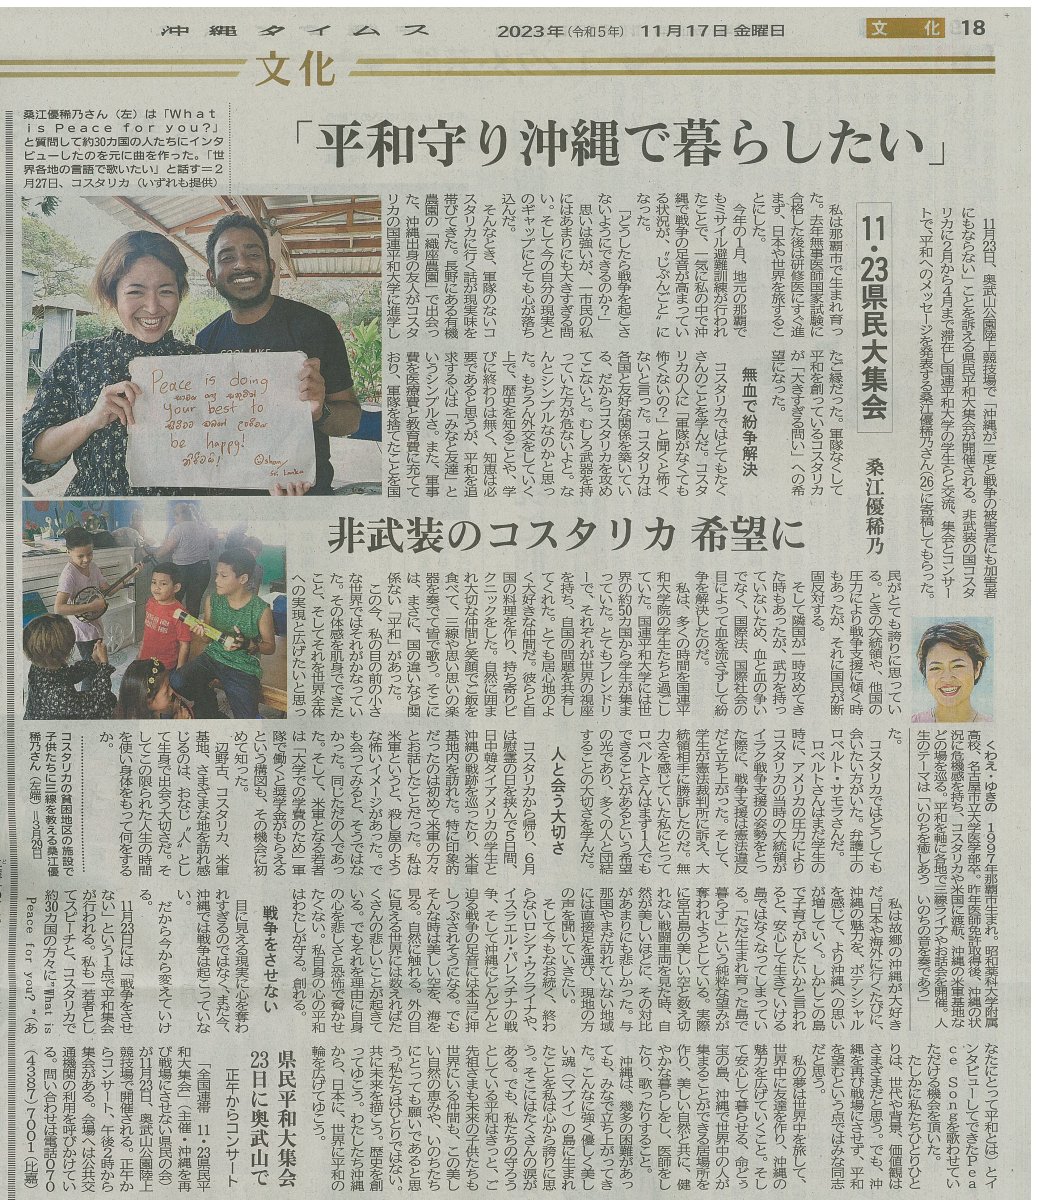 沖縄タイムス
2023年(令和5年) 11月17日 金曜日
文化 18
文化
桑江優稀乃さん(左)は「What
is Peace for you?」
と質問して約30カ国の人たちにインタ
ビューしたのを元に曲を作った。「世
界各地の言語で歌いたい」と話す=2
月27日、コスタリカ(いずれも提供)
「平和守り沖縄で暮らしたい」
11月23日、奥武山公園陸上競技場で「沖縄が二度と戦争の被害者にも加害者
にもならない」ことを訴える県民平和大集会が開催される。非武装の国コスタ
リカに2月から4月まで滞在し国連平和大学の学生らと交流、集会とコンサー
トで、平和へのメッセージを発表する桑江優稀乃さん(26)に寄稿してもらった。
11・23県民大集会
桑江優稀乃
私は那覇市で生まれ育っ
た。去年無事医師国家試験に
合格した後は研修医にすぐ進
まず、日本や世界を旅するこ
とにした。
今年の1月、地元の那覇で
もミサイル避難訓練が行われ
たことで、一気に私の中で沖
縄で戦争の足音が高まってい
る状況が、〝じぶんごと〟に
なった。
「どうしたら戦争を起こさ
ないようにできるのか?」
思いは強いが、一市民の私
にはあまりにも大きすぎる問
い。そして今の自分の現実と
のギャップにとても心が落ち
込んだ。
そんなとき、軍隊のないコ
スタリカに行く話が現実味を
帯びてきた。長野にある有機
農園の「織座農園」で出会っ
た、沖縄出身の友人がコスタ
リカの国連平和大学に進学し
たご縁だった。軍隊なくして
平和を創っているコスタリカ
が「大きすぎる問い」への希
望になった。
無血で紛争解決
コスタリカではとてもたく
さんのことを学んだ。コスタ
リカの人に「軍隊がなくても
怖くないの?」と聞くと怖く
ないと言った。コスタリカは
各国と友好な関係を築いてい
る、だからコスタリカを攻め
てこないと。むしろ武器を持
っていた方が危ないよと。な
んとシンプルなのかと思っ
た。もちろん外交をしていく
上で、歴史を知ることや、学
びに終わりは無く、知恵は必
要であると思うが、平和を追
求する心は「みんな友達」と
いうシンプルさ。また、軍事
費を医療費と教育費に充てて
おり、軍隊を捨てたことを国
Peace is doing
your best to
be happy!
Oshan
Sri Lanka
非武装のコスタリカ 希望に
民がとても誇りに思ってい
る。ときの大統領や、他国の
圧力により戦争支援に傾く時
もあったが、それに国民が断
固反対する。
そして隣国が一時攻めてき
た時もあったが、武力を持っ
ていないため、血と血の争い
でなく、国際法、国際社会の
目によって血を流さずして紛
争を解決したのだ。
私は、多くの時間を国連平
和大学院の学生たちと過ごし
ていた。国連平和大学には世
界の約50カ国から学生が集ま
っていた。とてもフレンドリ
ーで、それぞれが世界の視座
を持ち、自国の問題を共有し
てくれた。とても居心地のよ
く大好きな仲間だ。彼らと自
国の料理を作り、持ち寄りピ
クニックをした。自然に囲ま
れ大切な仲間と笑顔でご飯を
食べて、三線や思い思いの楽
器を奏でて皆で歌う。そこに
は、まさに、国の違いなど関
係ない「平和」があった。
この今、私の目の前の小さ
な世界ではそれがかなってい
た。その体感を肌身でできた
こと、そしてそれを世界全体
への実現と広げたいと思っ
た。
コスタリカではどうしても
会いたい方がいた。弁護士の
ロベルト・サモラさんだ。
ロベルトさんはまだ学生の
時に、アメリカの圧力により
コスタリカの当時の大統領が
イラク戦争支援の姿勢をとっ
た際に、戦争支援は憲法違反
だと立ち上がった。そして、
学生が憲法裁判所に訴え、大
統領相手に勝訴したのだ。無
力さを感じていた私にとって
ロベルトさんはまず1人でも
できることがあるという希望
の光であり、多くの人と団結
することの大切さを学んだ。
人と会う大切さ
コスタリカから帰り、6月
は慰霊の日を挟んで5日間、
日中韓タイアメリカの学生と
沖縄の戦跡を巡ったり、米軍
基地内を訪れた。特に印象的
だったのは初めて米軍の方々
とお話したことだった。私は
米軍というと、殺し屋のよう
な怖いイメージがあった。で
も会ってみると、そうではな
かった。同じただの人であっ
た。そして、米軍となる若者
は「大学での学費のため」軍
隊で働くと奨学金がもらえる
という構図も、その機会に初
めて知った。
辺野古、コスタリカ、米軍
基地、さまざまな地を訪れ感
じるのは、おなじ〝人〟とし
て生身で出会う大切さだ。そ
してこの限られた人生の時間
を使い身体をもって何をする
か。
コスタリカの貧困地区の施設で
子供たちに三線を教える桑江優
稀乃さん(左端)=3月29日
くわえ・ゆきの 1997年那覇市生まれ。昭和薬科大学附属
高校、名古屋市立大学医学部卒。昨年医師免許取得後、沖縄の現状
況に危機感を持ち、コスタリカや米国に渡航、沖縄の米軍基地な
どの場を巡る。平和を軸に各地で三線ライブやお話会を開催。人
生のテーマは「いのちを癒しあう いのちの音を奏であう」
私は故郷の沖縄が大好き
だ。日本や海外に行くたびに、
沖縄の魅力を、ポテンシャル
を感じて、より沖縄への思い
が増していく。しかしこの島
で子育てがしたいかと言われ
ると、安心して生きていける
島ではなくなってしまってい
る。「ただ生まれ育った島で
暮らす」という純粋な望みが
奪われようとしている。実際
に宮古島の美しい空と数え切
れない戦闘車両を見た時、自
然が美しいほどに、その対比
があまりにも悲しかった。与
那国やまだ訪れていない地域
には直接足を運び、現地の方
の声を聞いていきたい。
そして今もなお続く、終わ
らないロシア・ウクライナや、
イスラエル・パレスチナの戦
争、そして沖縄にどんどんと
迫る戦争の足音には本当に押
しつぶされそうになる。でも
そんな時は美しい空を、海を
見る。自然に触れる。外の目
に見える世界には数えればた
くさんの悲しいことが起きて
いる。でもそれを理由に自身
の心を悲しさと恐怖で脅かせ
たくない。私自身の心の平和
はわたしが守る。創れる。
戦争をさせない
目に見える現実に心を奪わ
れすぎるのではなく、まだ今、
沖縄では戦争は起こっていな
い。
だから今から変えていけ
る。
11月23日には「戦争をさせ
ない」という1点で平和集会
が行われる。私も一若者とし
てスピーチと、コスタリカで
約30カ国の方々に“What is
Peace for you?”(あ
なたにとって平和とは)とイ
ンタビューしてできたPea
ce Songを歌わせてい
ただける機会を頂いた。
たしかに私たちひとりひと
りは、世代や背景、価値観は
さまざまだと思う。でも、沖
縄を再び戦場にさせず、平和
を望むという点ではみな同志
だと思う。
私の夢は世界中を旅して、
世界中に友達を作り、沖縄の
魅力を広げていくこと。そし
て安心して暮らせる、命どぅ
宝の島、沖縄で世界中の人が
集まることができる居場所を
作り、美しい自然と共に、健
やかな暮らしをし、医師をし
たり、歌ったりすること。
沖縄は、幾多の困難があっ
ても、みんなで立ち上がって
きた。こんなに強く優しく美し
い魂(マブイ)の島に生まれ
たことを私は心から誇りに思
う。そこにはたくさんの涙が
ある。でも、私たちの守ろう
としている平和はきっと、ご
先祖さまも未来の子供たちも
世界にいる仲間も、この美し
い自然の恵みや、いのちたち
にとっての願いであると思
う。私たちはひとりではない。
共に未来を描こう。歴史を創
ってゆこう。わたしたち沖縄
から、日本に、世界に平和の
輪を広げてゆこう。
県民平和大集会
23日に奥武山で
正午からコンサート
「全国連帯 11・23県民平
和大集会」(主催・沖縄を再
び戦場にさせない県民の会)
が11月23日、奥武山公園陸上
競技場で開催される。正午か
らコンサート、午後2時から
集会がある。会場へは公共交
通機関の利用を呼びかけてい
る。問い合わせは電話070
(4387)7001(比嘉)